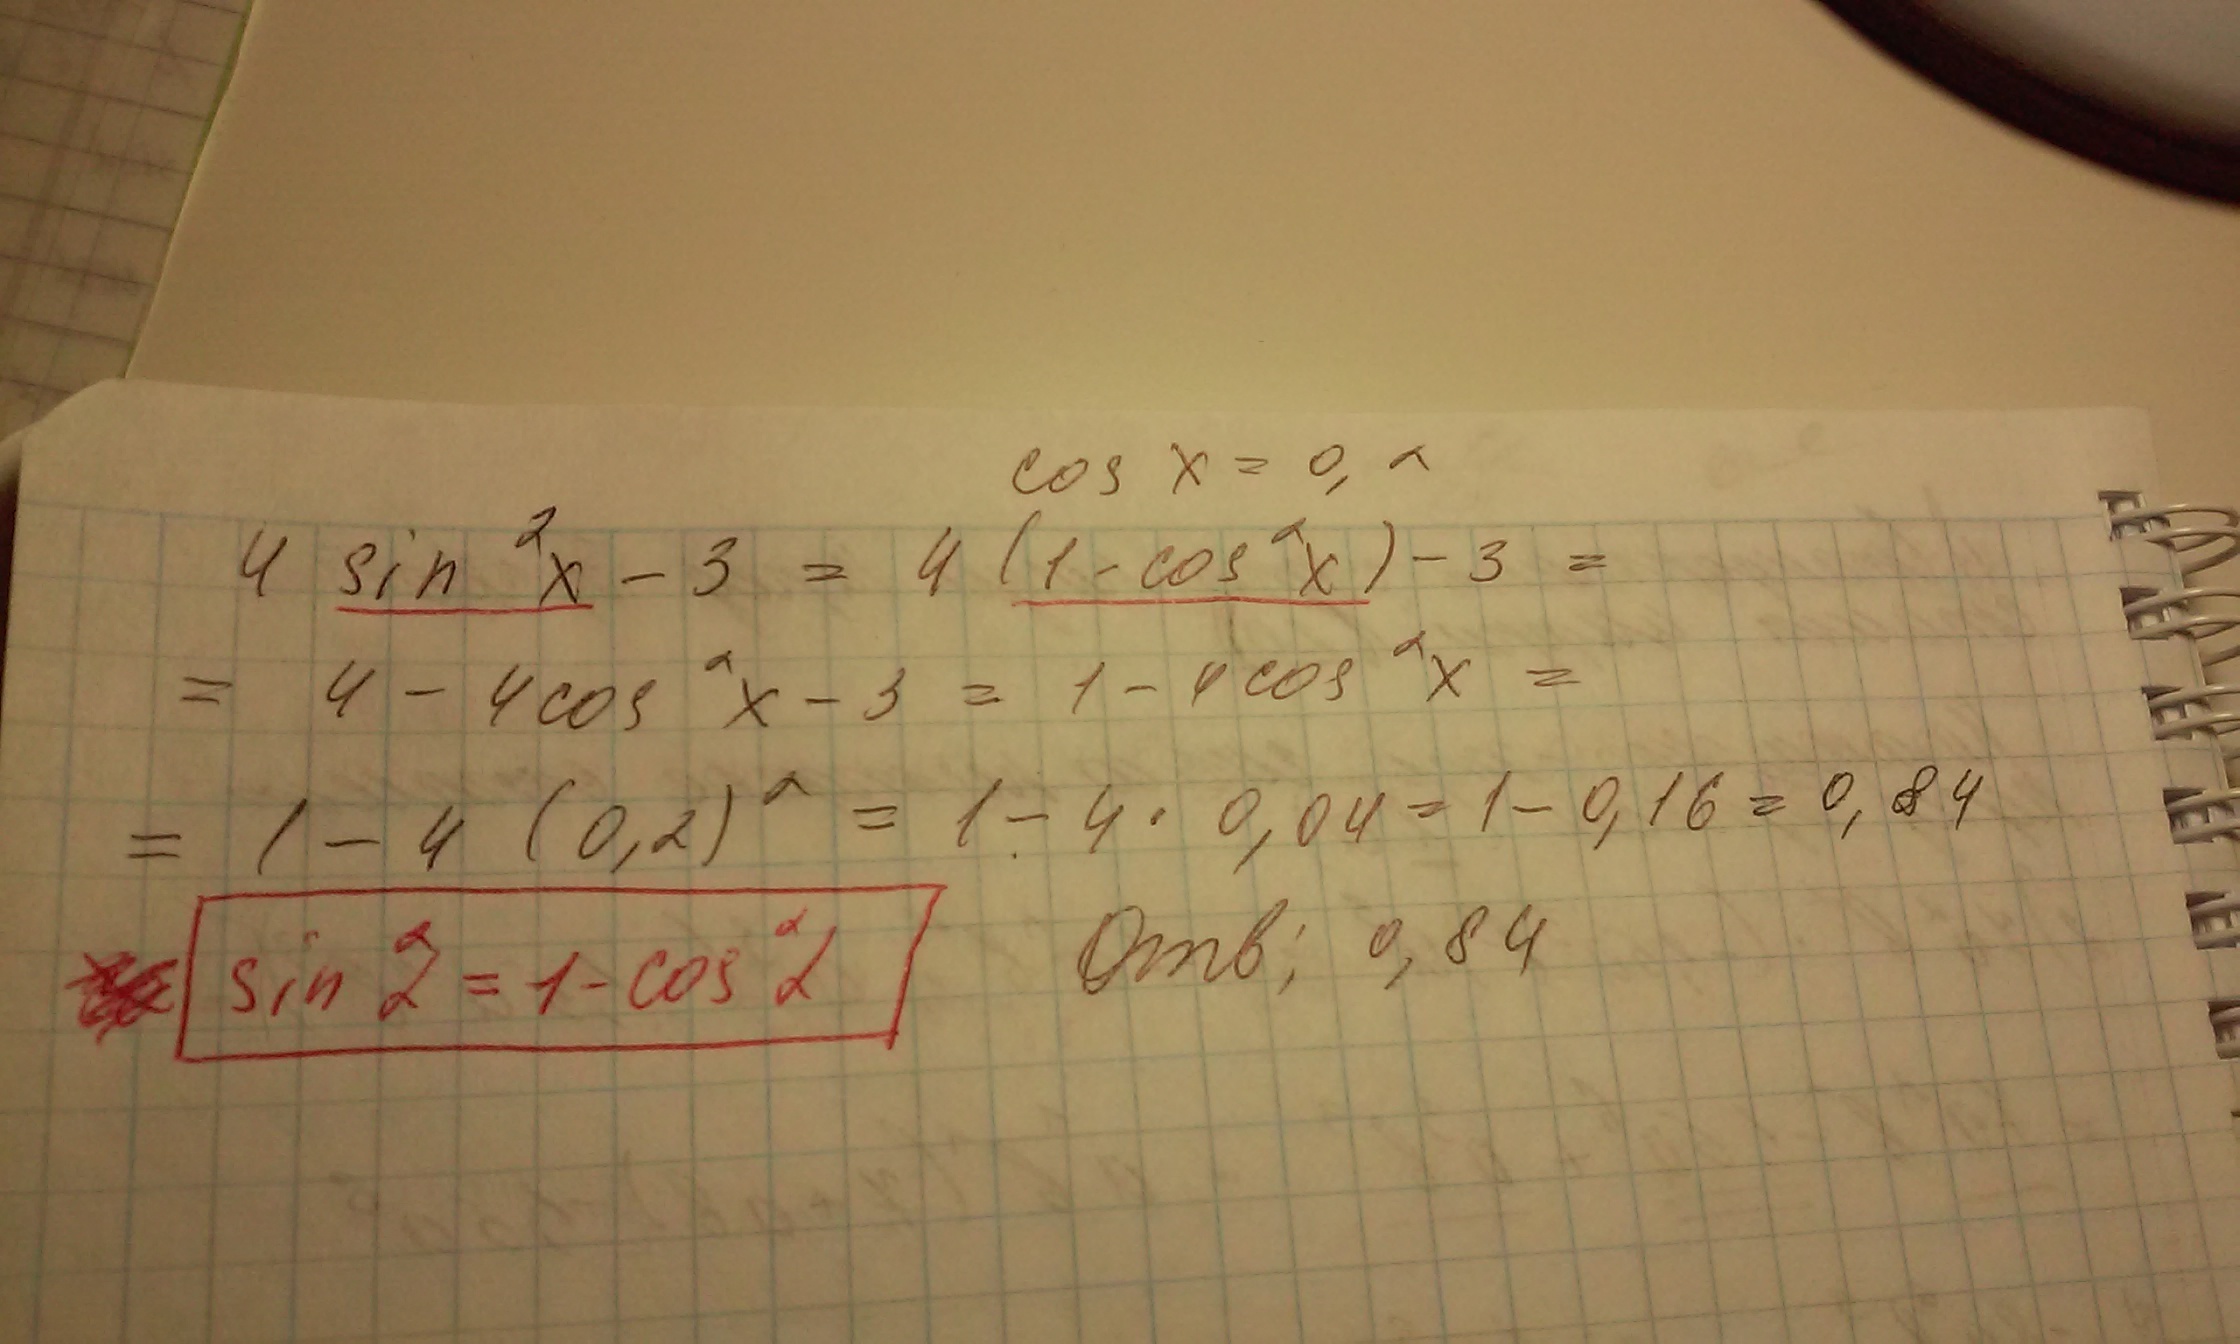 cos x = 0,2
4 sin²x - 3 = 4 (1 - cos²x) - 3 =
= 4 - 4cos²x - 3 = 1 - 4cos²x =
= 1 - 4 (0,2)² = 1 - 4 · 0,04 = 1 - 0,16 = 0,84
sin²α = 1 - cos²α
Отв; 0,84